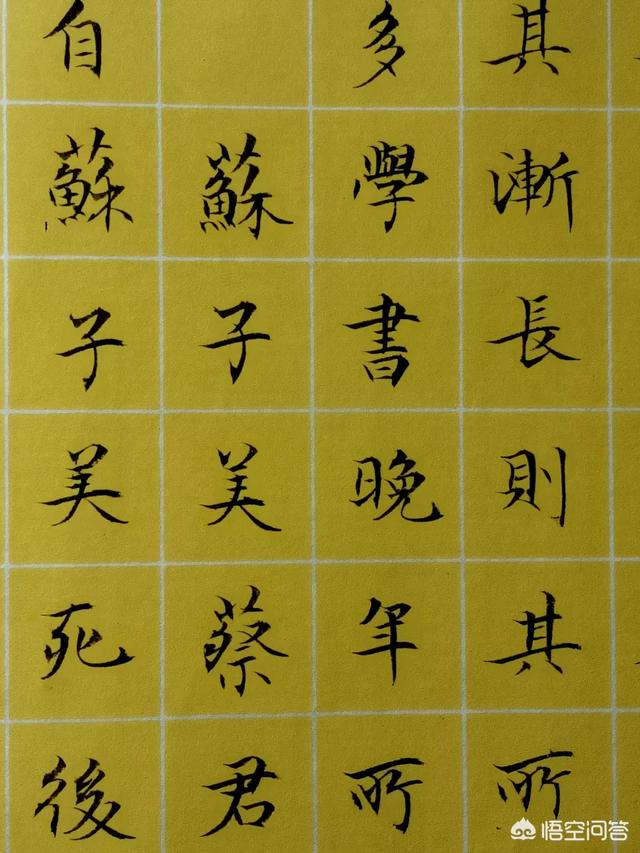 其漸長則其所
多學書晚年所
蘇子美蔡君
自蘇子美死後
悟空问答